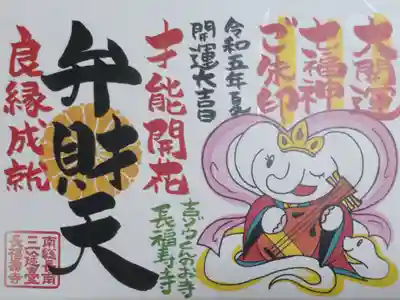 大開運
七福神
ご朱印
令和五年夏
開運大吉日
才能開花
弁財天
良縁成就
吉ゾウくんのお寺
長福寿寺
南総長南
三途臺
長福壽寺